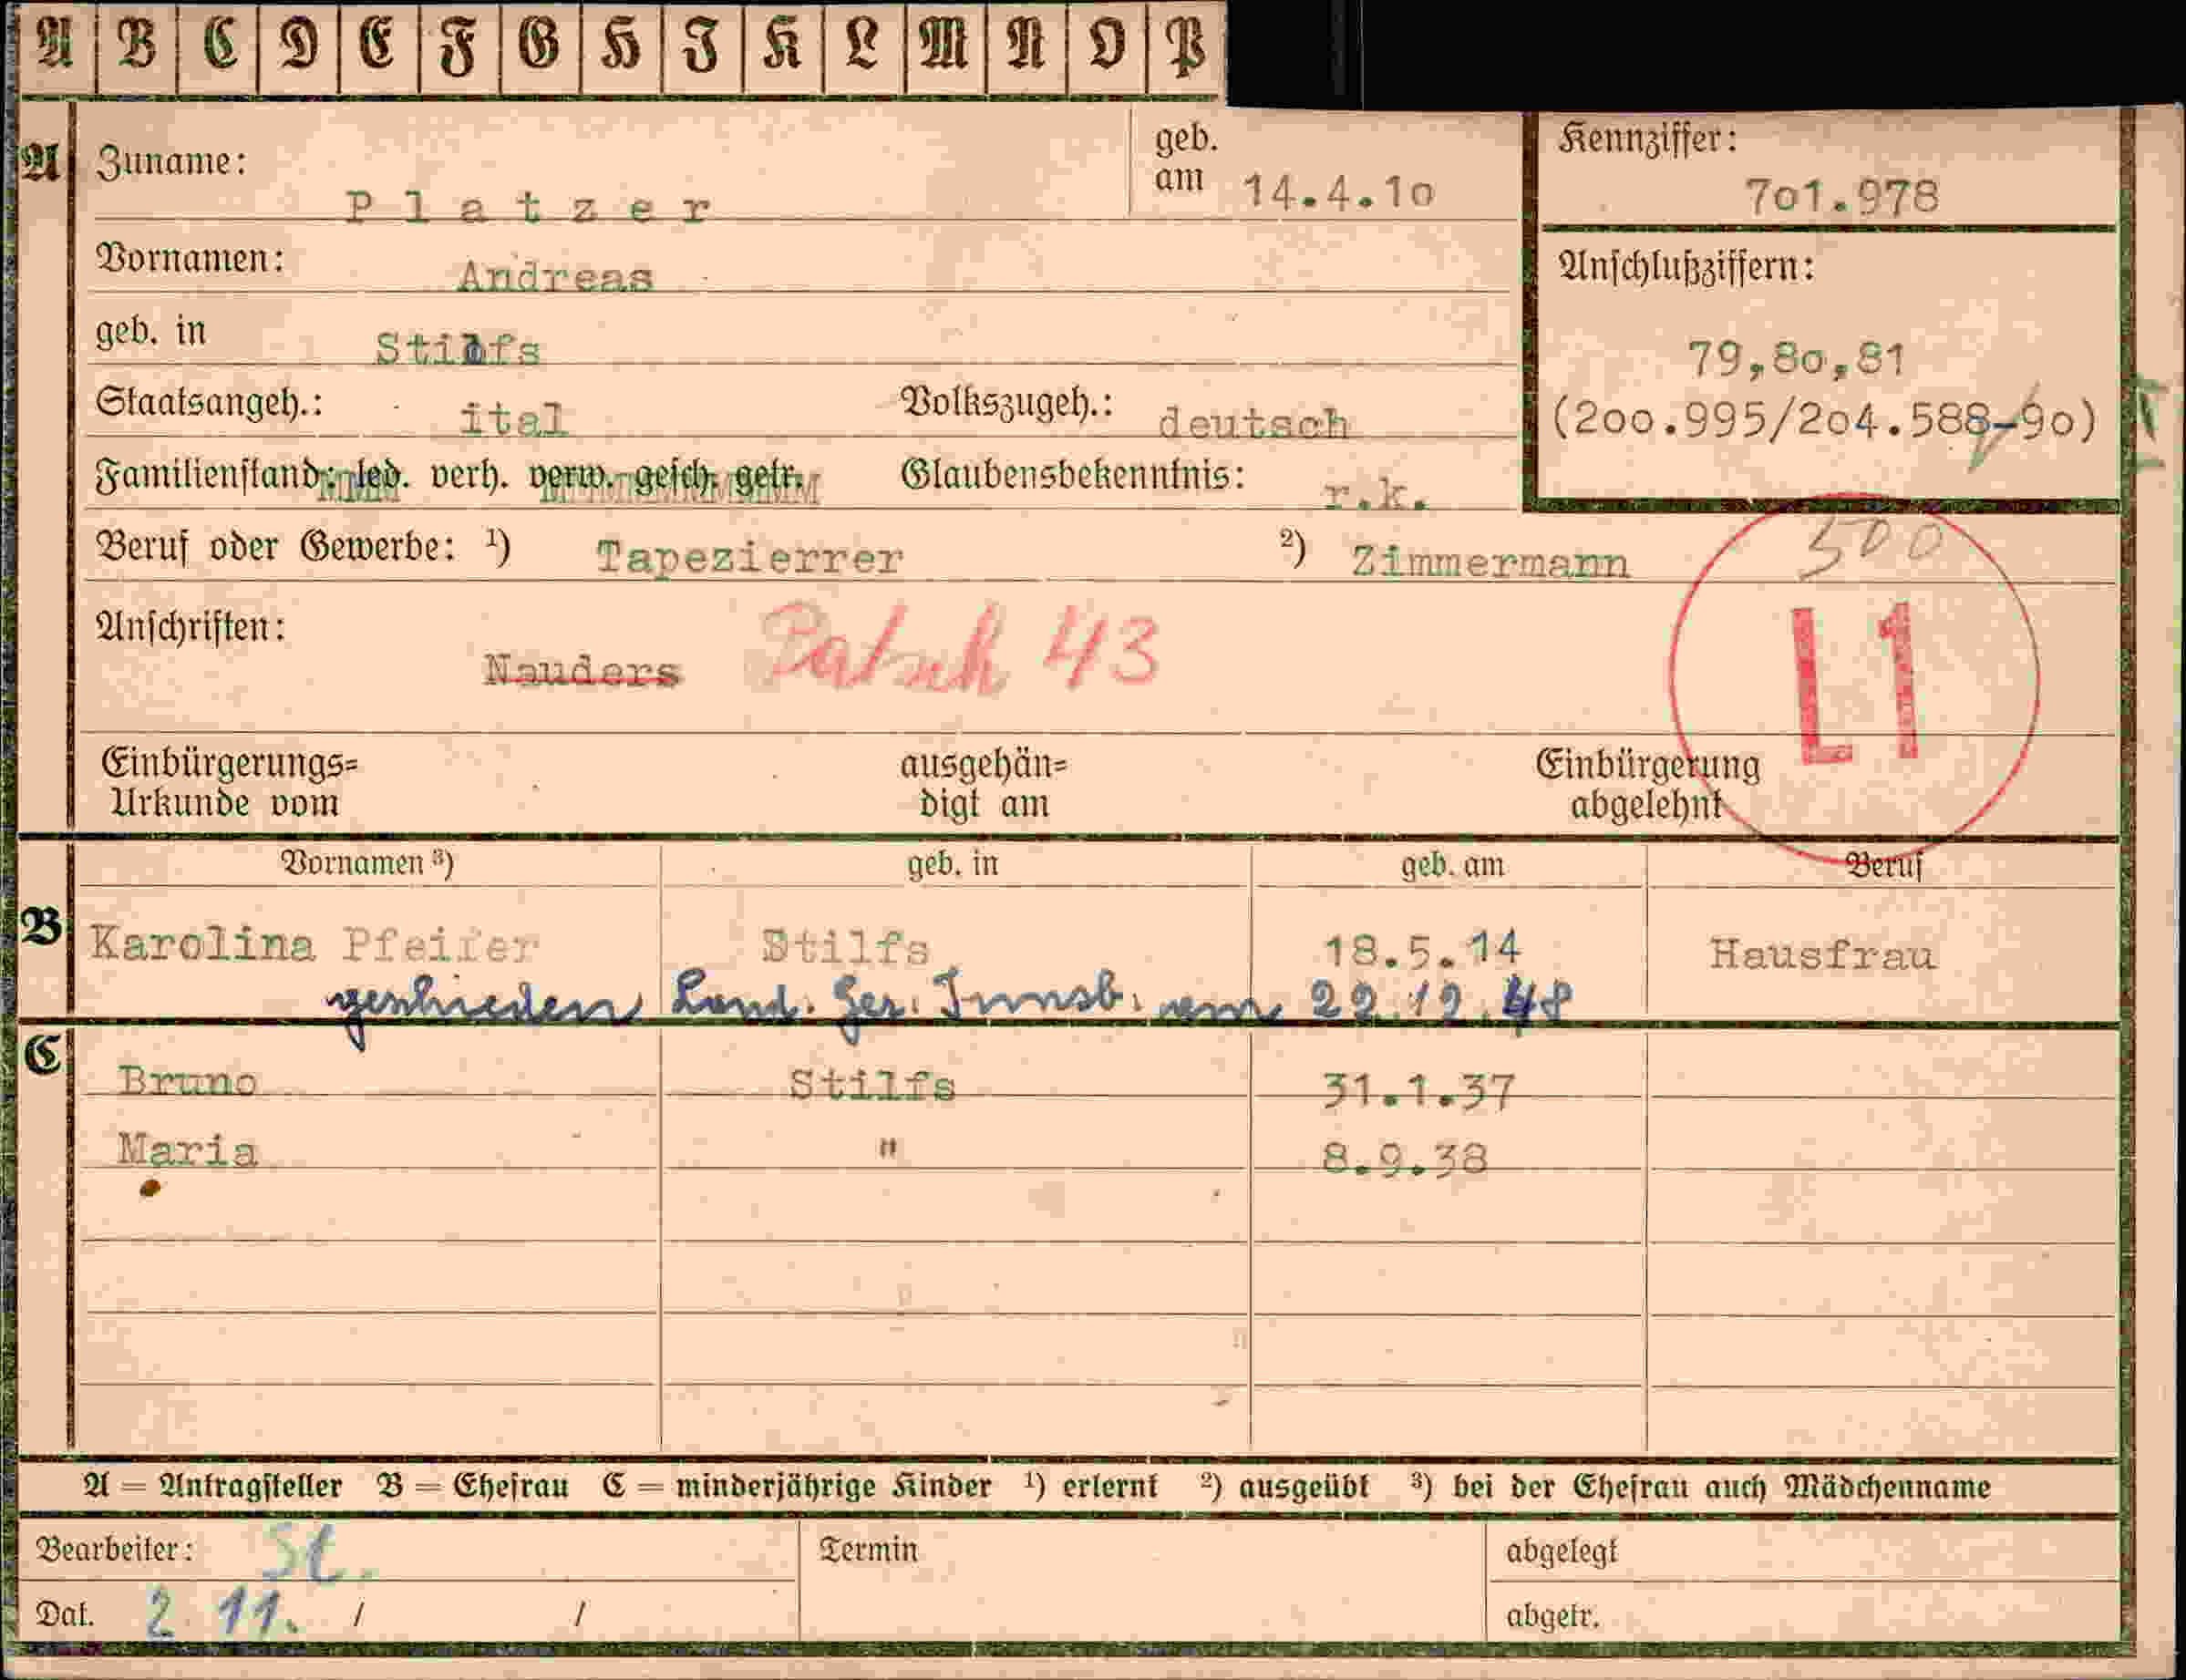 A B C D E F G H I K L M N O P
A Zuname: Platzer geb. am 14.4.1o
Kennziffer: 7o1.978
Vornamen: Andreas
Anschlußziffern:
geb. in Stilfs
79,8o,81
Staatsangeh.: ital Volkszugeh.: deutsch
(2oo.995/2o4.588-9o)
Familienstand: led. verh. verw. gesch. getr. Glaubensbekenntnis: r.k.
Beruf oder Gewerbe: ¹) Tapezierrer ²) Zimmermann
500
L1
Anschriften: Nauders Patsch 43
Einbürgerungs= Urkunde vom
ausgehän= digt am
Einbürgerung abgelehnt
Vornamen ³) geb. in geb. am Beruf
B Karolina Pfeifer Stilfs 18.5.14 Hausfrau
geschieden Land. Ger. Innsb. vom 22.12.48
C Bruno Stilfs 31.1.37
Maria " 8.9.38
A = Antragsteller B = Ehefrau C = minderjährige Kinder ¹) erlernt ²) ausgeübt ³) bei der Ehefrau auch Mädchenname
Bearbeiter: St. Termin abgelegt
Dat. 2 11. / / abgetr.